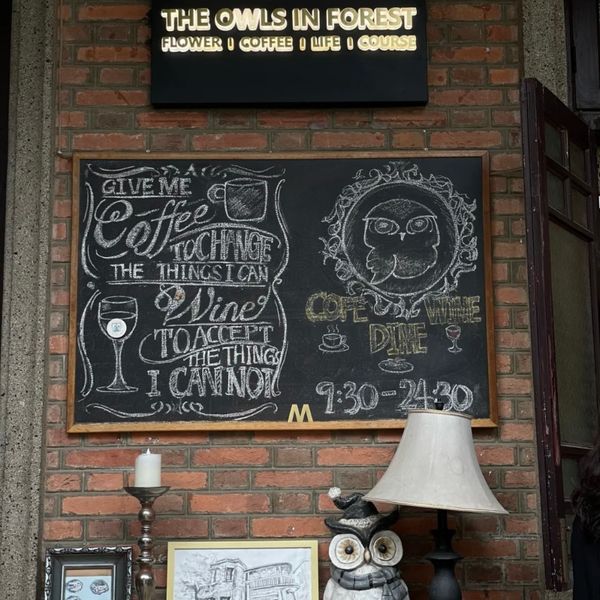 THE OWLS IN FOREST
FLOWER | COFFEE | LIFE | COURSE
GIVE ME
Coffee
TO CHANGE
THE THINGS I CAN
Wine
TO ACCEPT
THE THINGS
I CAN NOT
COFE WINE
DINE
9:30-24:30
M